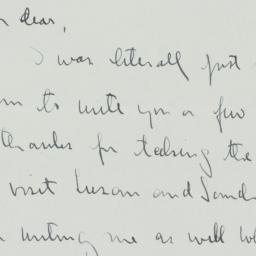 dear,
I was literall just
to write you a few
thanks for taking the
visit Susan and Sand
writing me as well